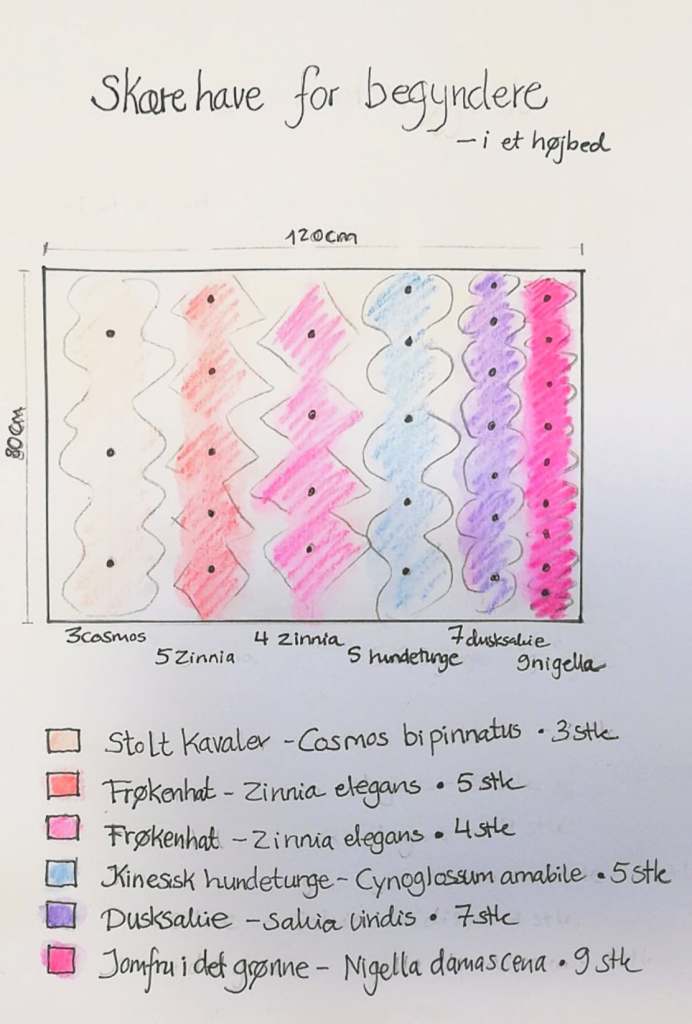 Skærehave for begyndere
- i et højbed
120cm
80cm
3 cosmos
5 Zinnia
4 Zinnia
5 hundetunge
7 dusksalvie
9 nigella
Stolt Kavaler - Cosmos bipinnatus • 3 stk
Frøkenhat - Zinnia elegans • 5 stk
Frøkenhat - Zinnia elegans • 4 stk
Kinesisk hundetunge - Cynoglossum amabile • 5 stk
Dusksalvie - Salvia viridis • 7 stk
Jomfru i det grønne - Nigella damascena • 9 stk